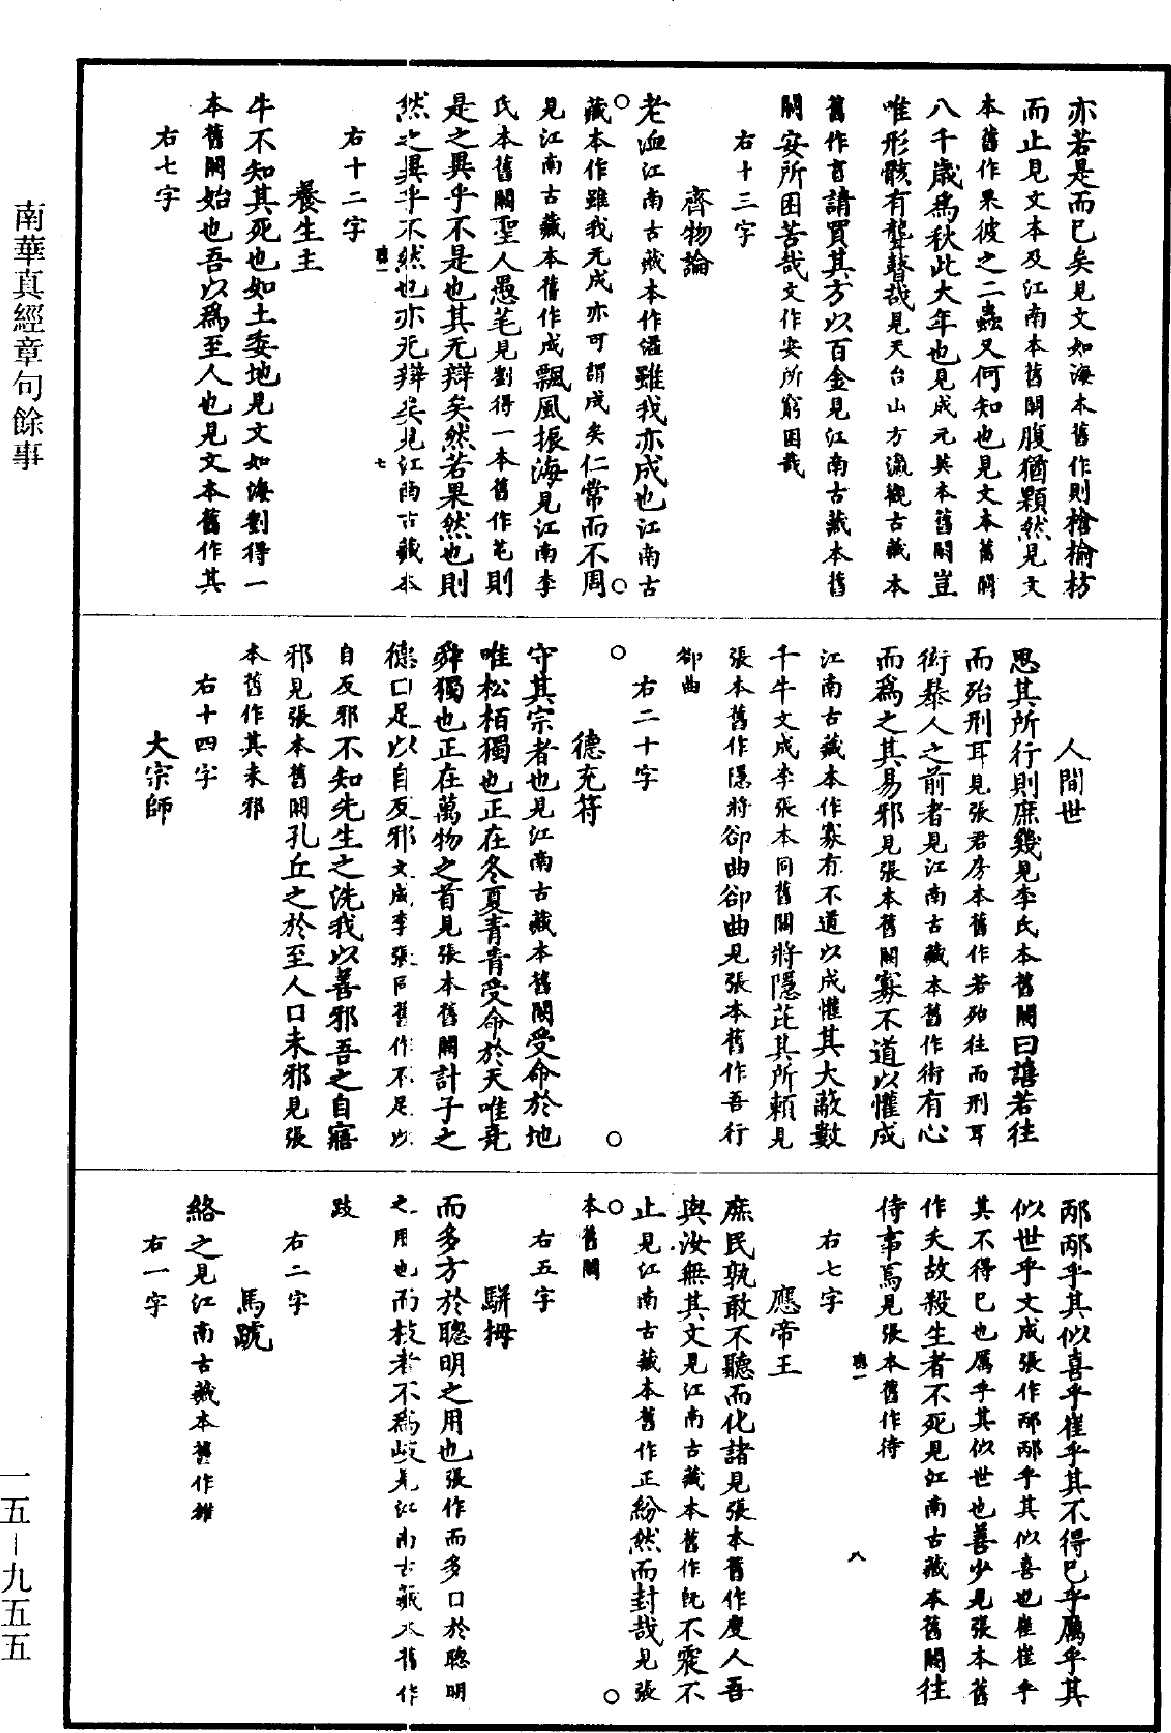 亦若是而已矣見文如海本舊作則槍榆枋
而止見文本及江南本舊闕腹猶顆然見文
本舊作果彼之二蟲又何知也見文本舊闕
八千歲爲秋此大年也見成元英本舊闕豈
唯形骸有聾瞽哉見天台山方瀛觀古藏本
舊作盲請買其方以百金見江南古藏本舊
闕安所困苦哉文作安所窮困哉
右十三字
齊物論
老洫江南古藏本作溢雖我亦成也江南古
藏本作雖我无成亦可謂成矣仁常而不周
見江南古藏本舊作成飄風振海見江南李
氏本舊闕聖人愚芚見劉得一本舊作芚則
是之異乎不是也其无辯矣然若果然也則
然之異乎不然也亦无辯矣見江南古藏本
右十二字
養生主
牛不知其死也如土委地見文如海劉得一
本舊闕始也吾以爲至人也見文本舊作其
右七字
人間世
思其所行則庶幾見李氏本舊闕曰譆若往
而殆刑耳見張君房本舊作若殆往而刑耳
衒暴人之前者見江南古藏本舊作術有心
而爲之其易邪見張本舊闕寡不道以懽成
江南古藏本作寡有不道以成懽其大蔽數
千牛文成李張本同舊闕將隱芘其所賴見
張本舊作隱將卻曲卻曲見張本舊作吾行
卻曲
右二十字
德充符
守其宗者也見江南古藏本舊闕受命於地
唯松栢獨也正在冬夏青青受命於天唯堯
舜獨也正在萬物之首見張本舊闕計子之
德口足以自反邪文成李張同舊作不足以
自反邪不知先生之洗我以善邪吾之自寤
邪見張本舊闕孔丘之於至人口未邪見張
本舊作其未邪
右十四字
大宗師
邴邴乎其似喜乎崔乎其不得已乎厲乎其
似世乎文成張作邴邴乎其似喜也崔崔乎
其不得已也厲乎其似世也善少見張本舊
作夭故殺生者不死見江南古藏本舊闕往
侍事焉見張本舊作待
右七字
應帝王
庶民孰敢不聽而化諸見張本舊作度人吾
與汝無其文見江南古藏本舊作既不震不
止見江南古藏本舊作正紛然而封哉見張
本舊闕
右五字
駢拇
而多方於聰明之用也張作而多口於聰明
之用也而枝者不爲歧見江南古藏本舊作
跂
右二字
馬蹄
絡之見江南古藏本舊作雒
右一字
南華真經章句餘事
一五－九五五